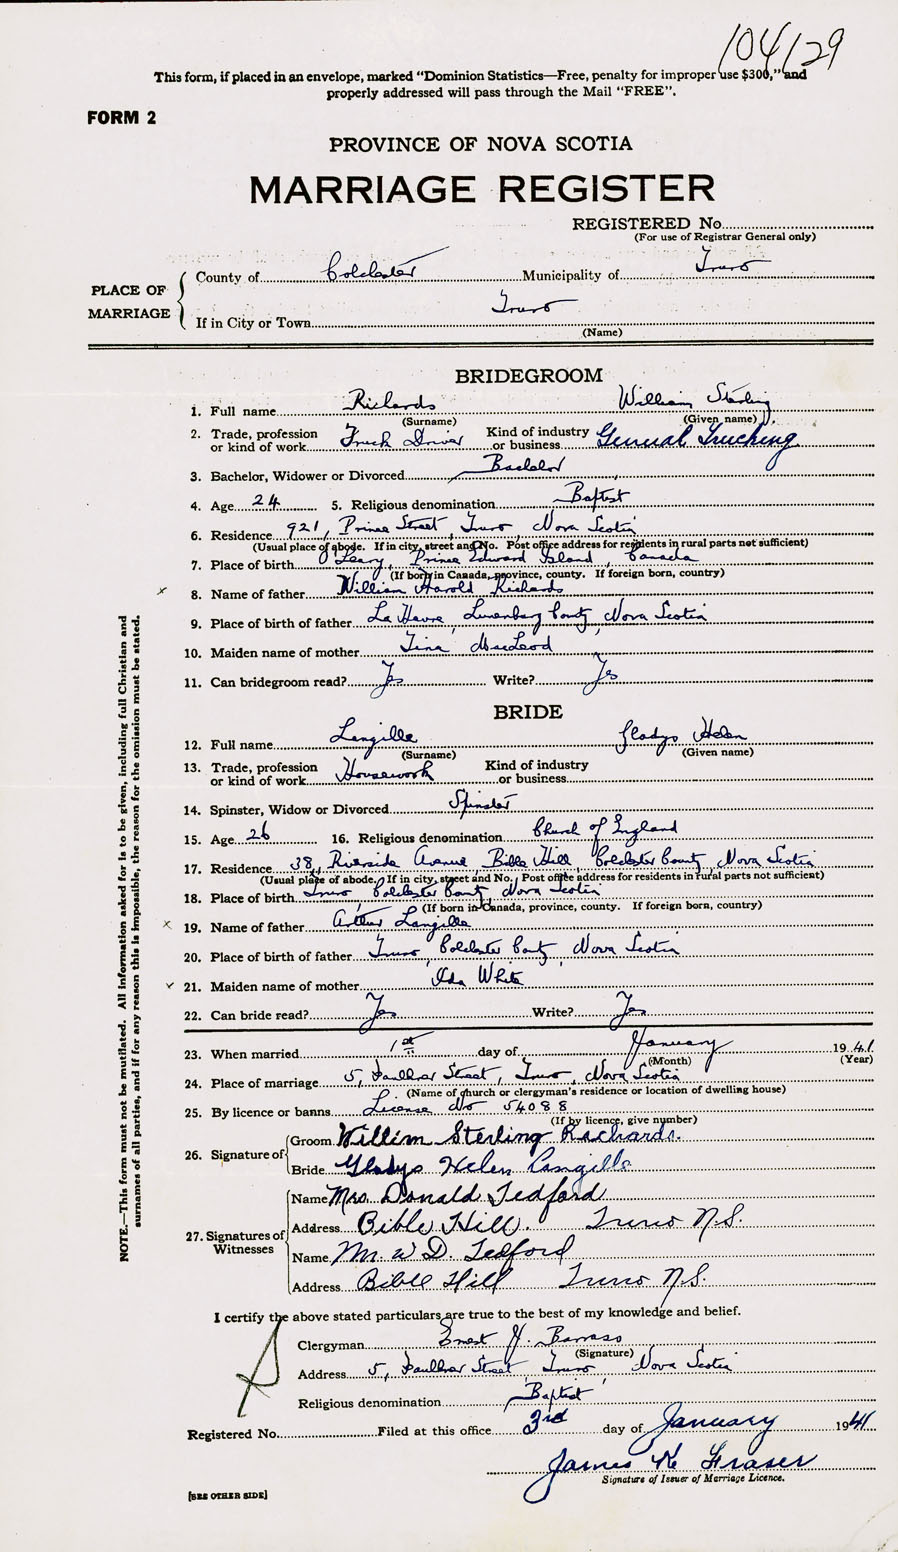 104129
This form, if placed in an envelope, marked "Dominion Statistics—Free, penalty for improper use $300," and
properly addressed will pass through the Mail "FREE".
FORM 2
PROVINCE OF NOVA SCOTIA
MARRIAGE REGISTER
REGISTERED No.
(For use of Registrar General only)
PLACE OF MARRIAGE
County of Colchester Municipality of Truro
If in City or Town Truro
(Name)
BRIDEGROOM
1. Full name Richards William Sterling
(Surname) (Given name)
2. Trade, profession or kind of work Truck Driver Kind of industry or business General Trucking
3. Bachelor, Widower or Divorced Bachelor
4. Age 24 5. Religious denomination Baptist
6. Residence 921, Prince Street, Truro, Nova Scotia
(Usual place of abode. If in city, street and No. Post office address for residents in rural parts not sufficient)
7. Place of birth O'Leary, Prince Edward Island, Canada
(If born in Canada, province, county. If foreign born, country)
x 8. Name of father William Harold Richards
9. Place of birth of father La Have, Lunenburg County, Nova Scotia
10. Maiden name of mother Tina MacLeod
11. Can bridegroom read? Yes Write? Yes
BRIDE
12. Full name Langille Gladys Helen
(Surname) (Given name)
13. Trade, profession or kind of work Housework Kind of industry or business
14. Spinster, Widow or Divorced Spinster
15. Age 26 16. Religious denomination Church of England
17. Residence 38, Riverside Avenue, Bible Hill, Colchester County, Nova Scotia
(Usual place of abode. If in city, street and No. Post office address for residents in rural parts not sufficient)
18. Place of birth Truro, Colchester County, Nova Scotia
(If born in Canada, province, county. If foreign born, country)
x 19. Name of father Arthur Langille
20. Place of birth of father Truro, Colchester County, Nova Scotia
✓ 21. Maiden name of mother Ida White
22. Can bride read? Yes Write? Yes
23. When married 1st day of January 1941
(Month) (Year)
24. Place of marriage 5, Faulkner Street, Truro, Nova Scotia
(Name of church or clergyman's residence or location of dwelling house)
25. By licence or banns License No 54088
(If by licence, give number)
26. Signature of Groom William Sterling Richards.
Bride Gladys Helen Langille
27. Signatures of Witnesses
Name Mrs. Donald Tedford
Address Bible Hill. Truro N.S.
Name Mr. W D. Tedford
Address Bible Hill Truro N.S.
I certify the above stated particulars are true to the best of my knowledge and belief.
Clergyman Ernest J. Barrass
(Signature)
Address 5, Faulkner Street, Truro, Nova Scotia
Religious denomination Baptist
Registered No. Filed at this office 3rd day of January 1941
James K Fraser
Signature of Issuer of Marriage Licence.
[SEE OTHER SIDE]
NOTE.—This form must not be mutilated. All information asked for is to be given, including full Christian and
surnames of all parties, and if for any reason this is impossible, the reason for the omission must be stated.